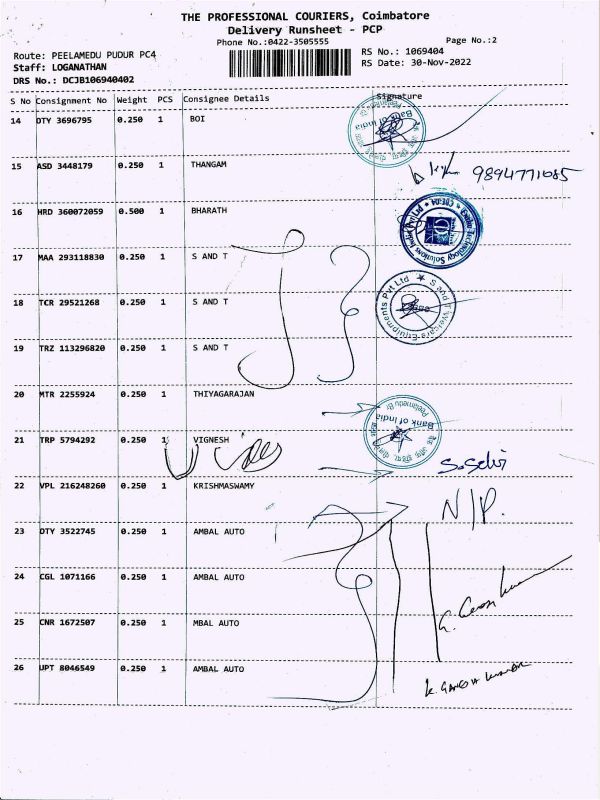 THE PROFESSIONAL COURIERS, Coimbatore
Delivery Runsheet - PCP
Phone No.:0422-3505555
Page No.:2
Route: PEELAMEDU PUDUR PC4
RS No.: 1069404
Staff: LOGANATHAN
RS Date: 30-Nov-2022
DRS No.: DCJB106940402
S No Consignment No Weight PCS Consignee Details Signature
14 DTY 3696795 0.250 1 BOI
Bank of India
Peelamedu Br
15 ASD 3448179 0.250 1 THANGAM
9894771085
16 HRD 360072059 0.500 1 BHARATH
17 MAA 293118830 0.250 1 S AND T
18 TCR 29521268 0.250 1 S AND T
S and T Welcare Equipments Pvt Ltd
19 TRZ 113296820 0.250 1 S AND T
20 MTR 2255924 0.250 1 THIYAGARAJAN
Bank of India
Peelamedu Br
21 TRP 5794292 0.250 1 VIGNESH
S.Selvi
22 VPL 216248260 0.250 1 KRISHMASWAMY
N/P.
23 DTY 3522745 0.250 1 AMBAL AUTO
24 CGL 1071166 0.250 1 AMBAL AUTO
25 CNR 1672507 0.250 1 MBAL AUTO
26 UPT 8046549 0.250 1 AMBAL AUTO